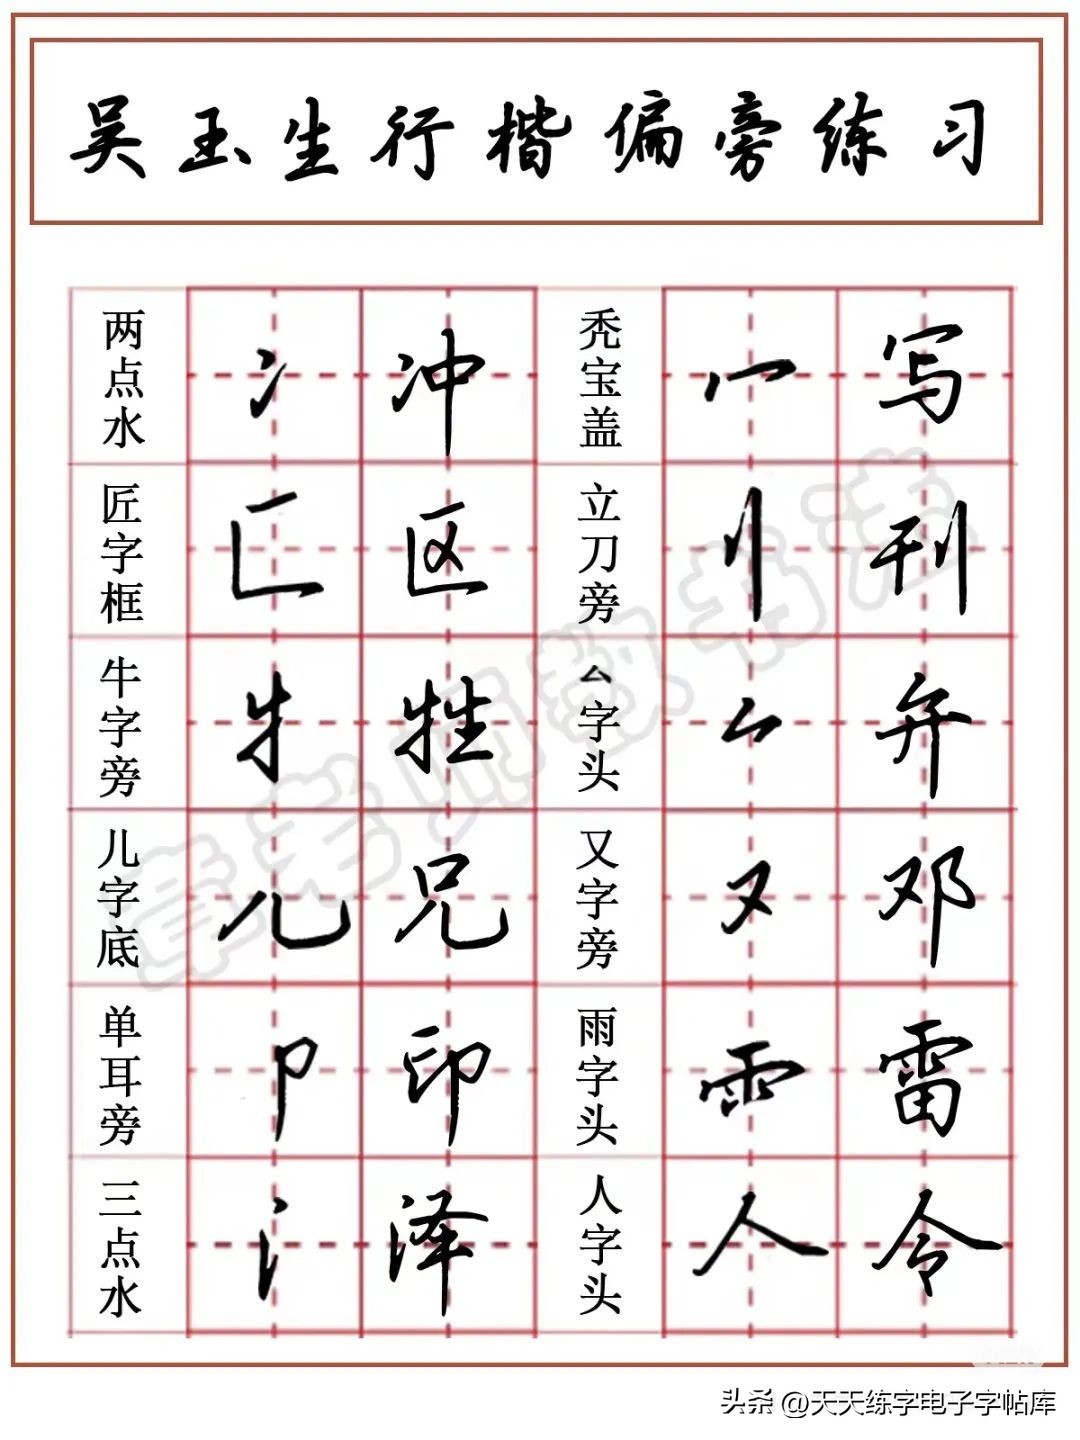 吴玉生行楷偏旁练习
两点水 冫 冲 秃宝盖 冖 写
匠字框 匚 区 立刀旁 刂 刊
牛字旁 牜 牲 厶字头 厶 弁
儿字底 儿 兄 又字旁 又 邓
单耳旁 卩 印 雨字头 ⻗ 雷
三点水 氵 泽 人字头 人 令
章老师教书法
头条 @天天练字电子字帖库